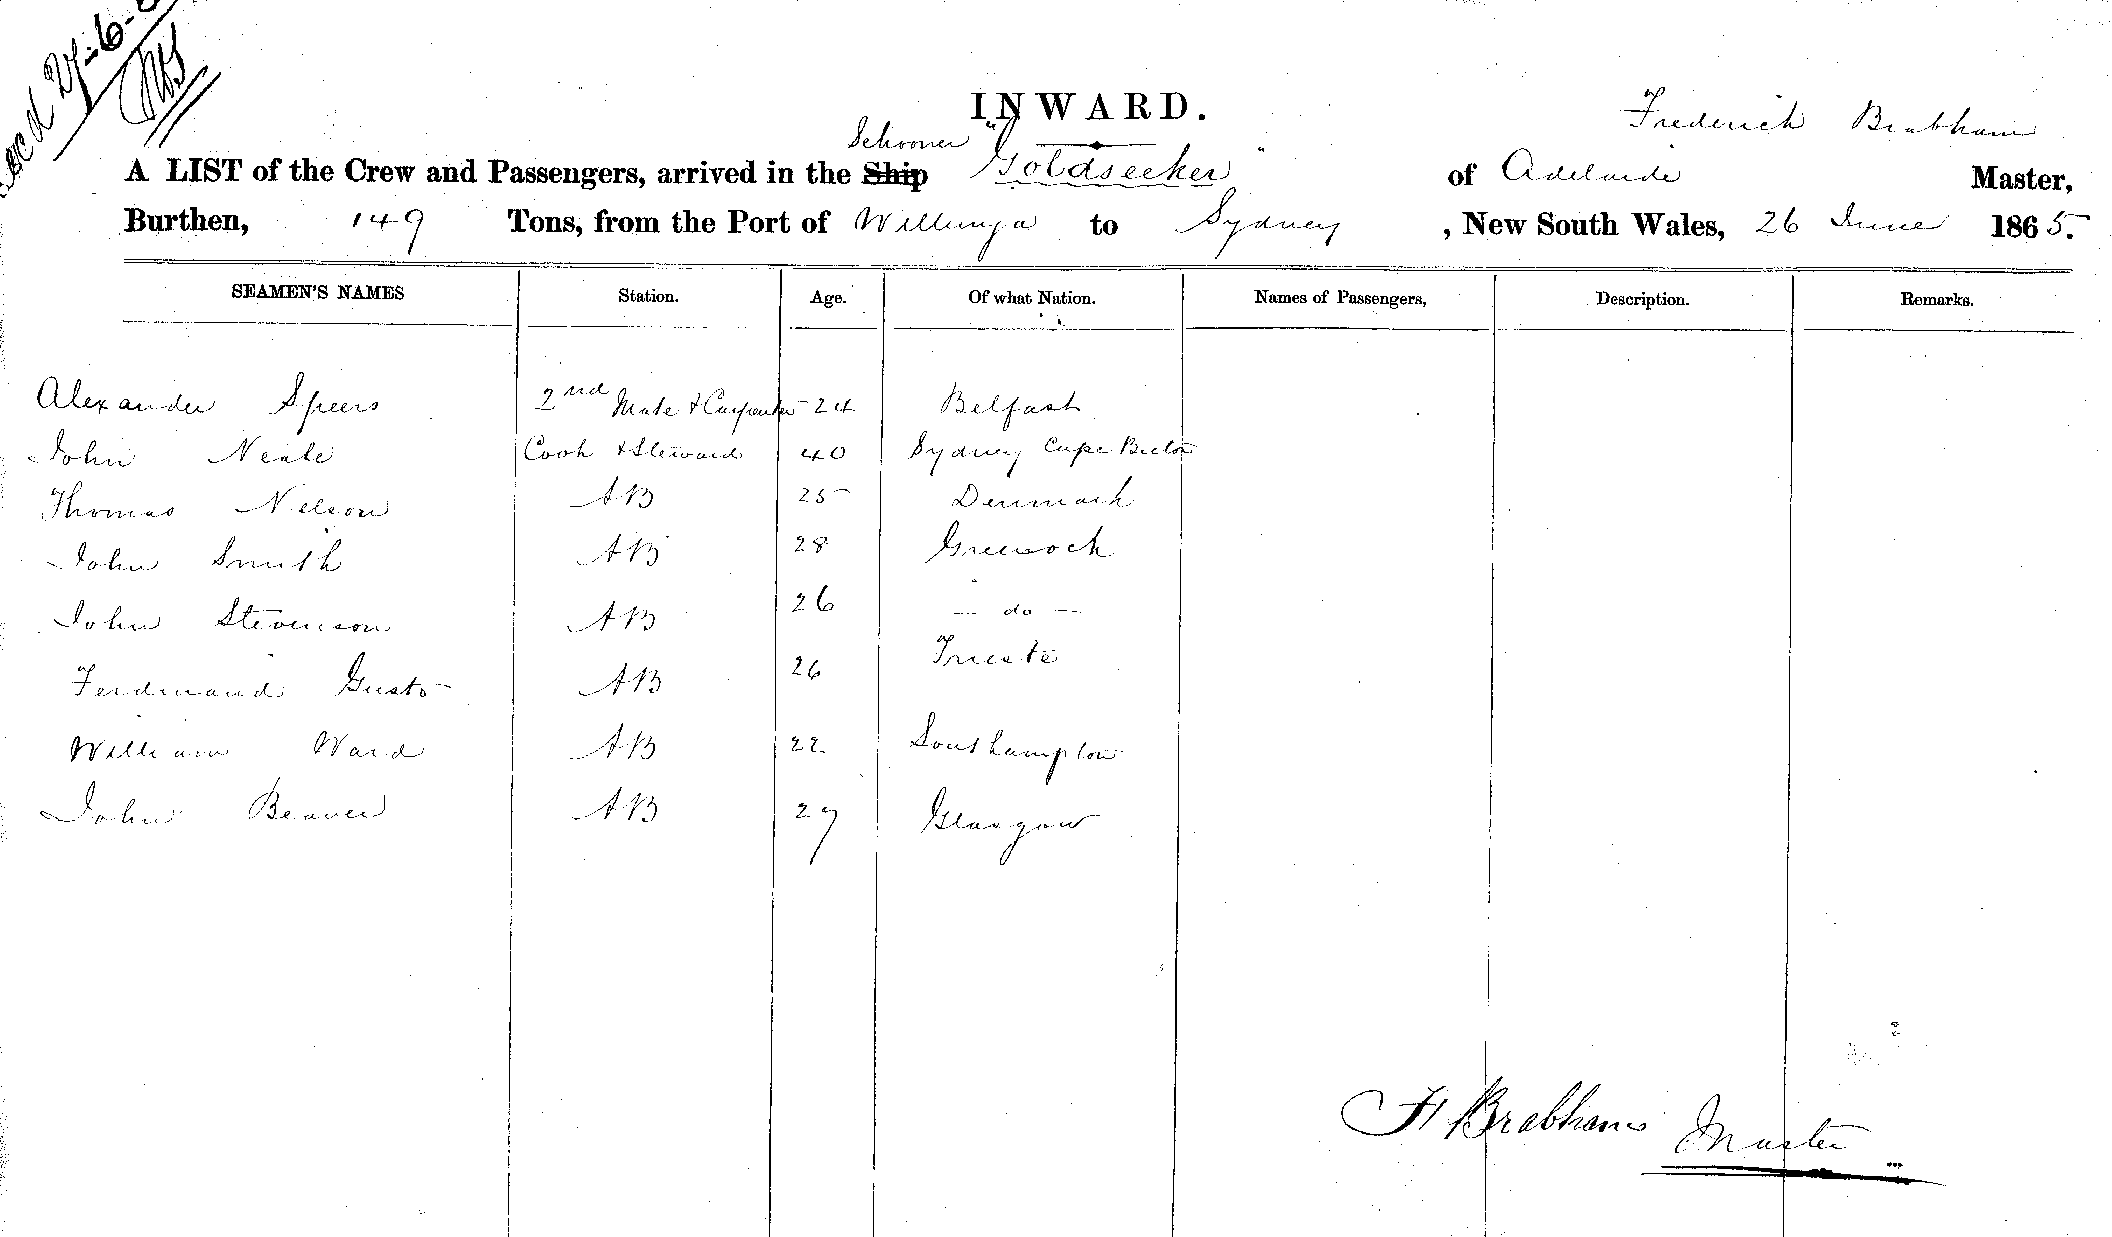 recd 27-6-6
INWARD.
Frederick Brabham
Schooner
A LIST of the Crew and Passengers, arrived in the Ship "Goldseeker" of Adelaide Master,
Burthen, 149 Tons, from the Port of Willunga to Sydney , New South Wales, 26 June 1865.
SEAMEN'S NAMES Station. Age. Of what Nation. Names of Passengers, Description. Remarks.
Alexander Speers 2nd Mate & Carpenter 24 Belfast
John Neale Cook & Steward 40 Sydney Cape Breton
Thomas Nelson AB 25 Denmark
John Smith AB 28 Greenock
John Stevenson AB 26 — do —
Ferdinand Gusto AB 26 Trieste
William Ward AB 22 Southampton
John Beaver AB 27 Glasgow
F Brabham Master